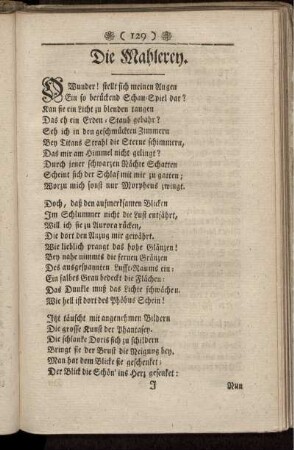 ( 129 )
Die Mahlerey.
O Wunder! stellt sich meinen Augen
Ein so berückend Schau-Spiel dar?
Kan sie ein Licht zu blenden taugen
Das eh ein Erden-Staub gebahr?
Seh ich in den geschmückten Zimmern
Bey Titans Strahl die Sterne schimmern,
Das mir am Himmel nicht gelingt?
Durch jener schwarzen Nächte Schatten
Scheint sich der Schlaf mit mir zu gatten;
Worzu mich sonst nur Morpheus zwingt.
Doch, daß den aufmerksamen Blicken
Im Schlummer nicht die Lust entfährt,
Will ich sie zu Aurora rücken,
Die dort den Anzug mir gewährt.
Wie lieblich prangt das hohe Glänzen!
Bey nahe nimmts die fernen Gränzen
Des ausgespannten Lufft-Raums ein:
Ein falbes Grau bedeckt die Flächen:
Das Dunkle muß das Lichte schwächen.
Wie hell ist dort des Phöbus Schein!
Itzt täuscht mit angenehmen Bildern
Die grosse Kunst der Phantasey.
Die schlanke Doris sich zu schildern
Bringt sie der Brust die Neigung bey.
Man hat dem Blicke sie geschenket:
Der Blick die Schön' ins Herz gesenket:
J
Nun